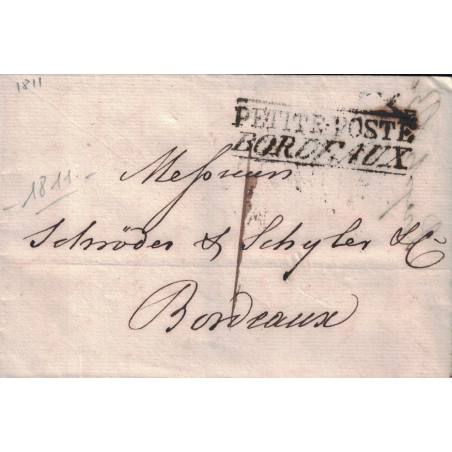 1811
PETITE-POSTE
BORDEAUX
Messieurs
- 1811 -
Schröder & Schyler & C
Bordeaux